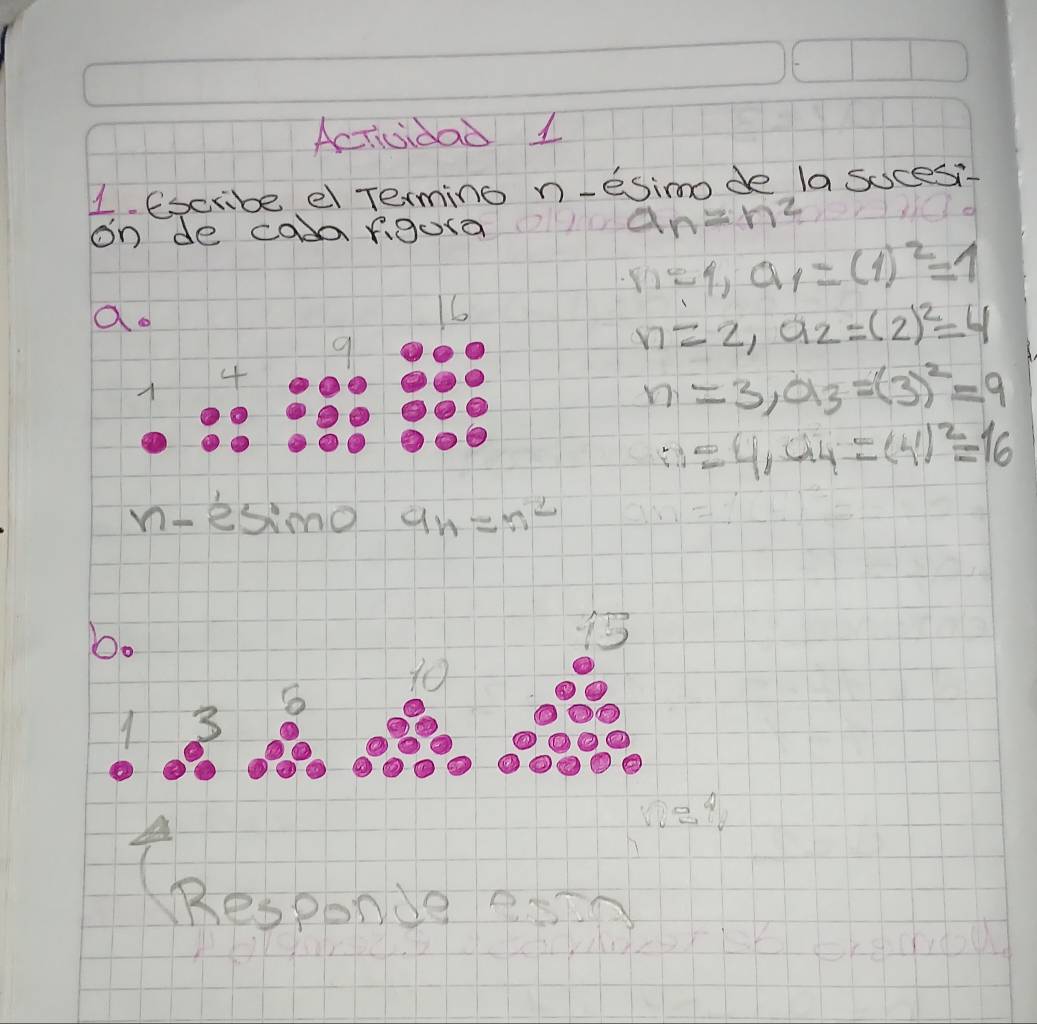 Actividad 1
1. Escribe el Termino n-ésimo de la sucesi-
ón de cada figura
an=n²
n=1, a1=(1)²=1
n=2, a2=(2)²=4
n=3, a3=(3)²=9
n=4, a4=(4)²=16
a.
1 4 9 16
n-ésimo an=n²
b.
1 3 6 10 15
n=1,
Responde esta